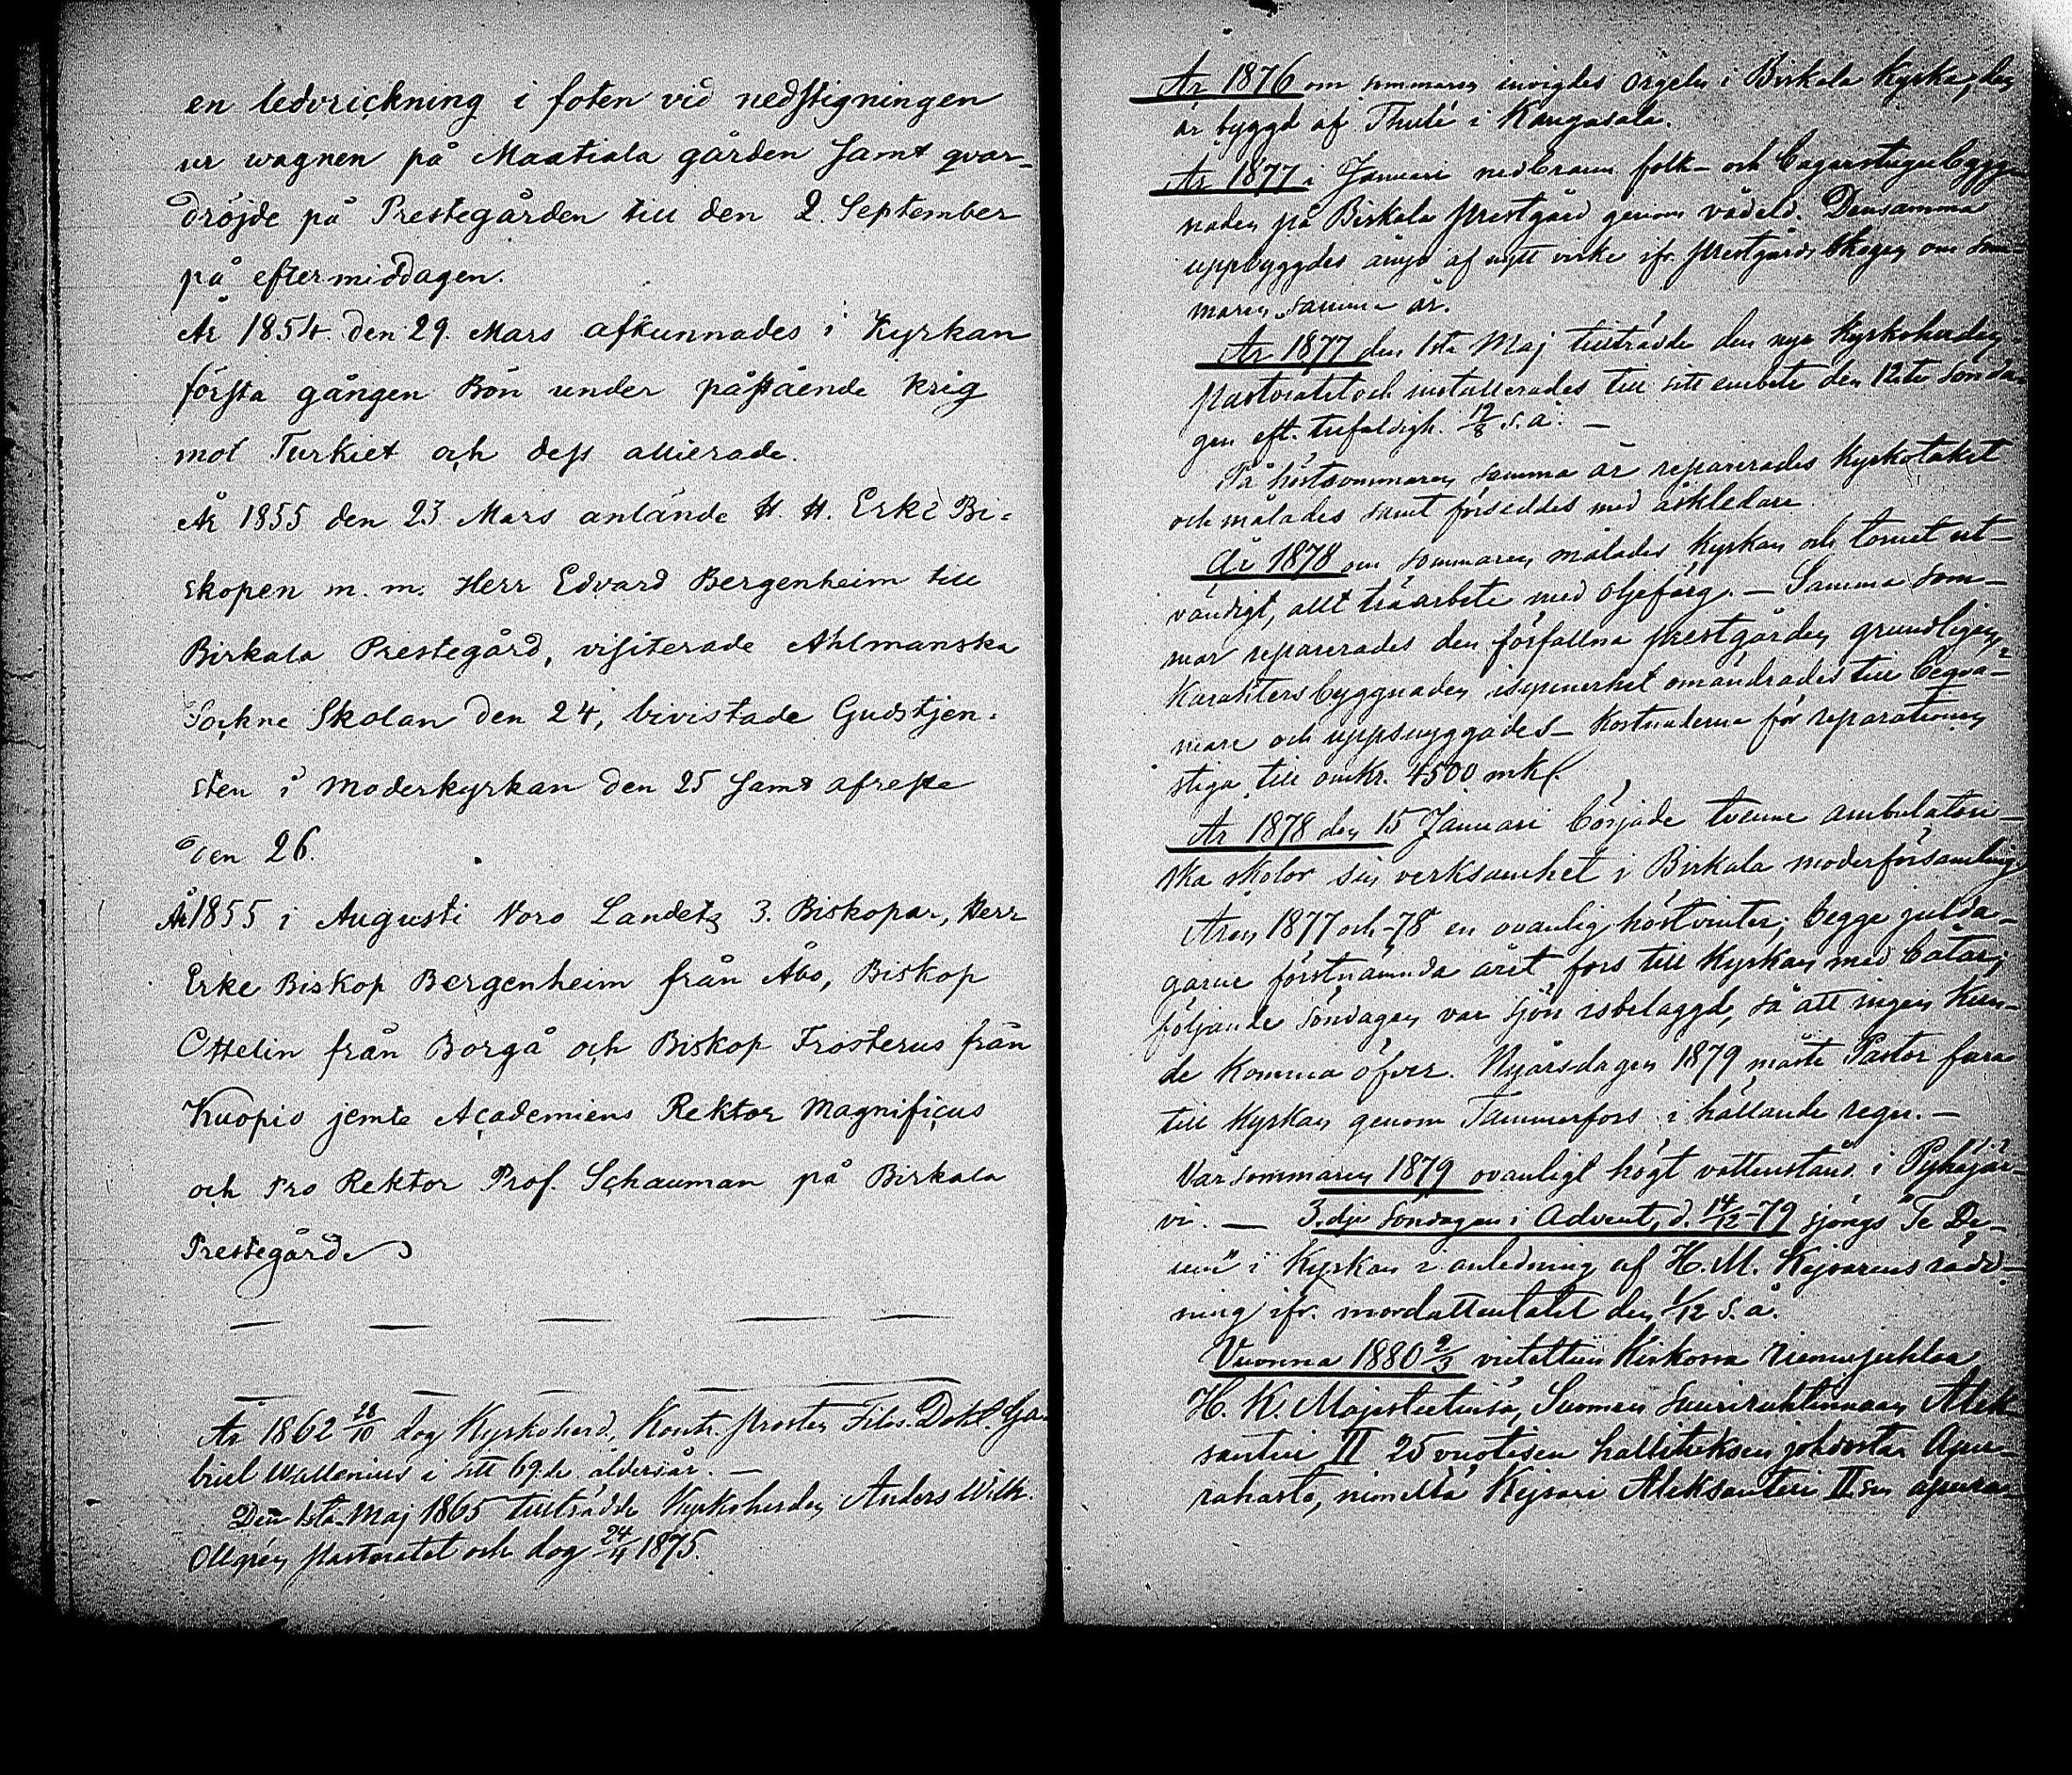 en ledvrickning i foten vid nedstigningen
ur wagnen på Maatiala gården samt qvar-
dröjde på Prestegården till den 2. September
på eftermiddagen.
År 1854 den 29. Mars afkunnades i Kyrkan
första gången Bön under påstående krig
mot Turkiet och dess allierade.
År 1855 den 23 Mars anlände H. H. Erke Bi-
skopen m. m. Herr Edvard Bergenheim till
Birkala Prestegård, visiterade Ahlmanska
Sockne Skolan den 24, bivistade Gudstjen-
sten i Moderkyrkan den 25 samt afreste
den 26.
År 1855 i Augusti voro Landets 3. Biskopar, Herr
Erke Biskop Bergenheim från Åbo, Biskop
Ottelin från Borgå och Biskop Frosterus från
Kuopio jemte Academiens Rektor Magnificus
och Pro Rektor Prof. Schauman på Birkala
Prestegård
År 1862 28/10 dog Kyrkoherd. Kontr. prosten Filos. Dokt. Ga-
briel Wallenius i sitt 69:de åldersår. —
Den 1sta Maj 1865 tillträdde Kyrkoherden Anders Wilh.
Ollgrén pastoratet och dog 24/4 1875.
År 1876 om sommaren invigdes orgeln i Birkala Kyrka, den
är byggd af Thulé i Kangasala.
År 1877 i Januari nedbrann folk- och bagarstugubygg-
naden på Birkala prestgård genom vådeld. Densamma
uppbyggdes ånyo af nytt virke ifr. prestgårds skogen om som-
maren samma år.
År 1877 den 1sta Maj tillträdde den nya Kyrkoherden
pastoratet och installerades till sitt embete den 12te sönda-
gen eft. trefaldigh. 19/8 s. å. —
På höstsommaren samma år reparerades kyrkotaket
och målades samt förseddes med åskledare.
År 1878 om sommaren målades Kyrkan och tornet ut-
vändigt, allt träarbete med oljefärg. — Samma som-
mar reparerades den förfallna prestgården grundligen,
Karaktersbyggnaden isynnerhet omändrades till beqvä-
mare och uppsnyggades — Kostnaderna för reparationen
stiga till omkr. 4500 mk.
År 1878 den 15 Januari började tvenne ambulatori-
ska skolor sin verksamhet i Birkala moderförsamling.
Åren 1877 och -78 en ovanlig höstvinter; begge julda-
garne förstnämnda året fors till Kyrkan med båtar;
följande söndagen var sjön isbelaggd, så att ingen kun-
de komma öfver. Nyårsdagen 1879 måste Pastor fara
till Kyrkan genom Tammerfors i hållande regn. —
Var sommaren 1879 ovanligt högt vattenstånd i Pyhäjär-
vi. — 3:dje Söndagen i Advent, d. 14/12 -79 sjöngs Te De-
um" i Kyrkan i anledning af H. M. Kejsarens rädd-
ning ifr. mordattentatet den 1/12 s. å.
Vuonna 1880 2/3 vietettiin Kirkossa riemujuhlaa
H. K. Majesteetinsa, Suomen Suuriruhtinnaan Alek-
santeri II 25 vuotisen hallituksen johdosta. Apu-
rahasto, nimeltä Kejsari Aleksanteri II:sen apura-